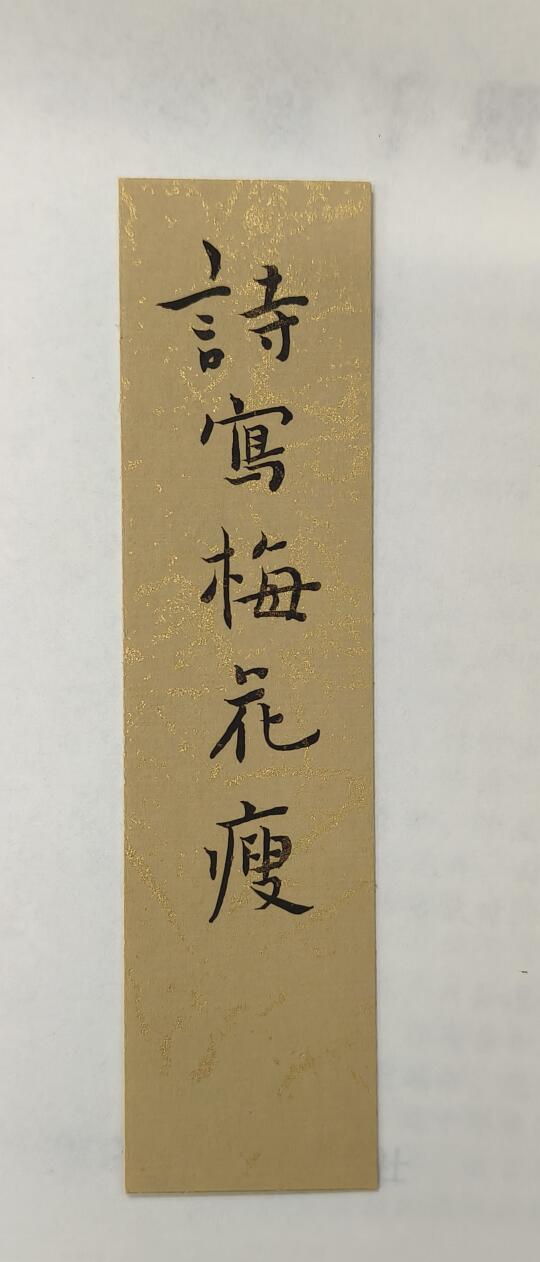 詩寫梅花瘦